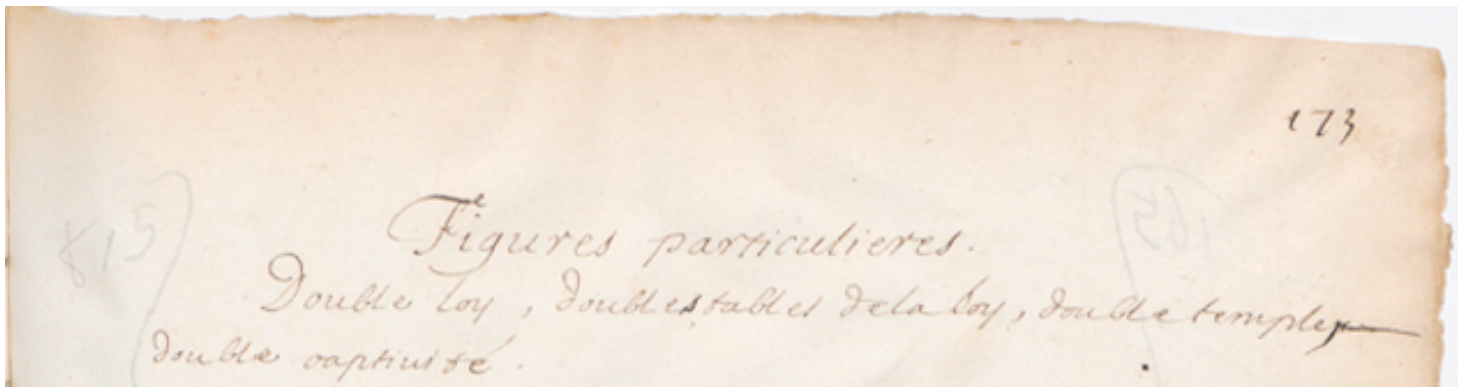 173
815
Figures particulieres.
Double loy, doubles tables de la loy, double temple,
double captiuité.